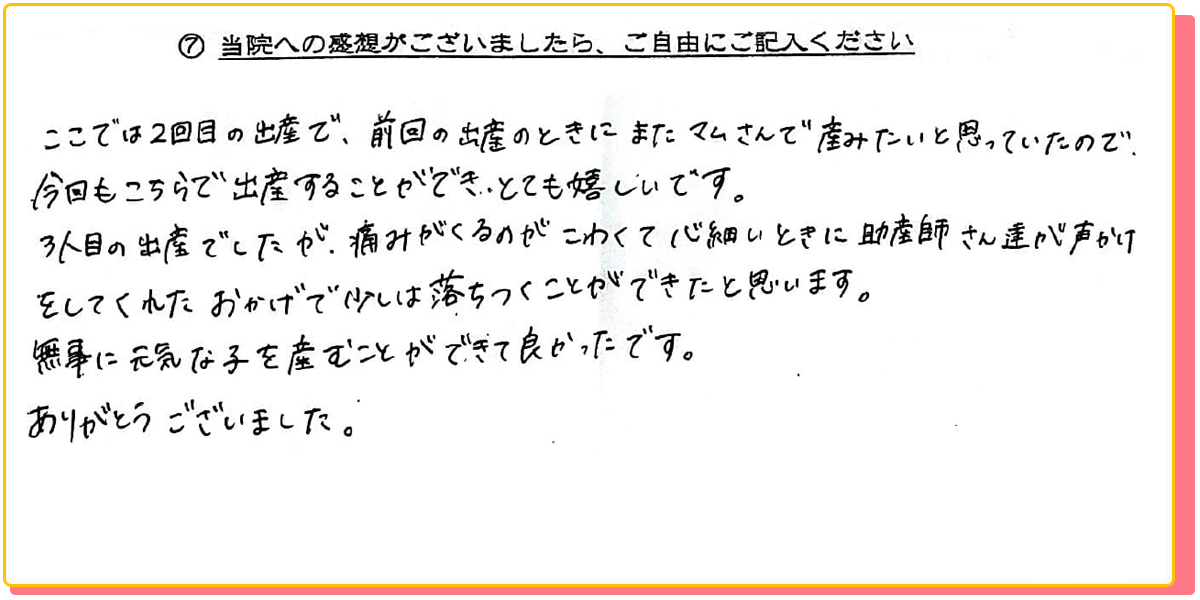 ⑦ 当院への感想がございましたら、ご自由にご記入ください
ここでは2回目の出産で、前回の出産のときにまたマムさんで産みたいと思っていたので、
今回もこちらで出産することができ、とても嬉しいです。
3人目の出産でしたが、痛みがくるのがこわくて心細いときに助産師さん達が声かけ
をしてくれたおかげで少しは落ちつくことができたと思います。
無事に元気な子を産むことができて良かったです。
ありがとうございました。